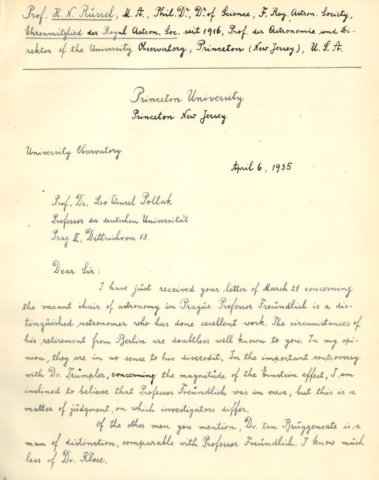 Prof. H. N. Rüssel, M. A., Phil. Dr., Dr. of Science, F. Roy. Astron. Society,
Ehrenmitglied der Royal Astron. Soc. seit 1916, Prof. der Astronomie und Di-
rektor of the University Observatory, Princeton (New Jersey), U. S. A.
Princeton University
Princeton New Jersey
University Observatory
April 6, 1935
Prof. Dr. Leo Wenzel Pollak
Professor der deutschen Universität
Prag II, Dittrichova 13.
Dear Sir:
I have just received your letter of March 21 concerning
the vacant chair of astronomy in Prague. Professor Freündlich is a dis-
tingüished astronomer who has done excellent work. The circumstances of
his retirement from Berlin are doubtless well known to you. In my opi-
nion, they are in no sense to his discredit. In the important controversy
with Dr. Trümpler, concerning the magnitüde of the Einstein effect, I am
inclined to believe that Professor Freündlich was in error; but this is a
matter of judgment, on which investigators differ.
Of the other men you mention, Dr. ten Brüggencate is a
man of distinction, comparable with Professor Freündlich. I know much
less of Dr. Klose.